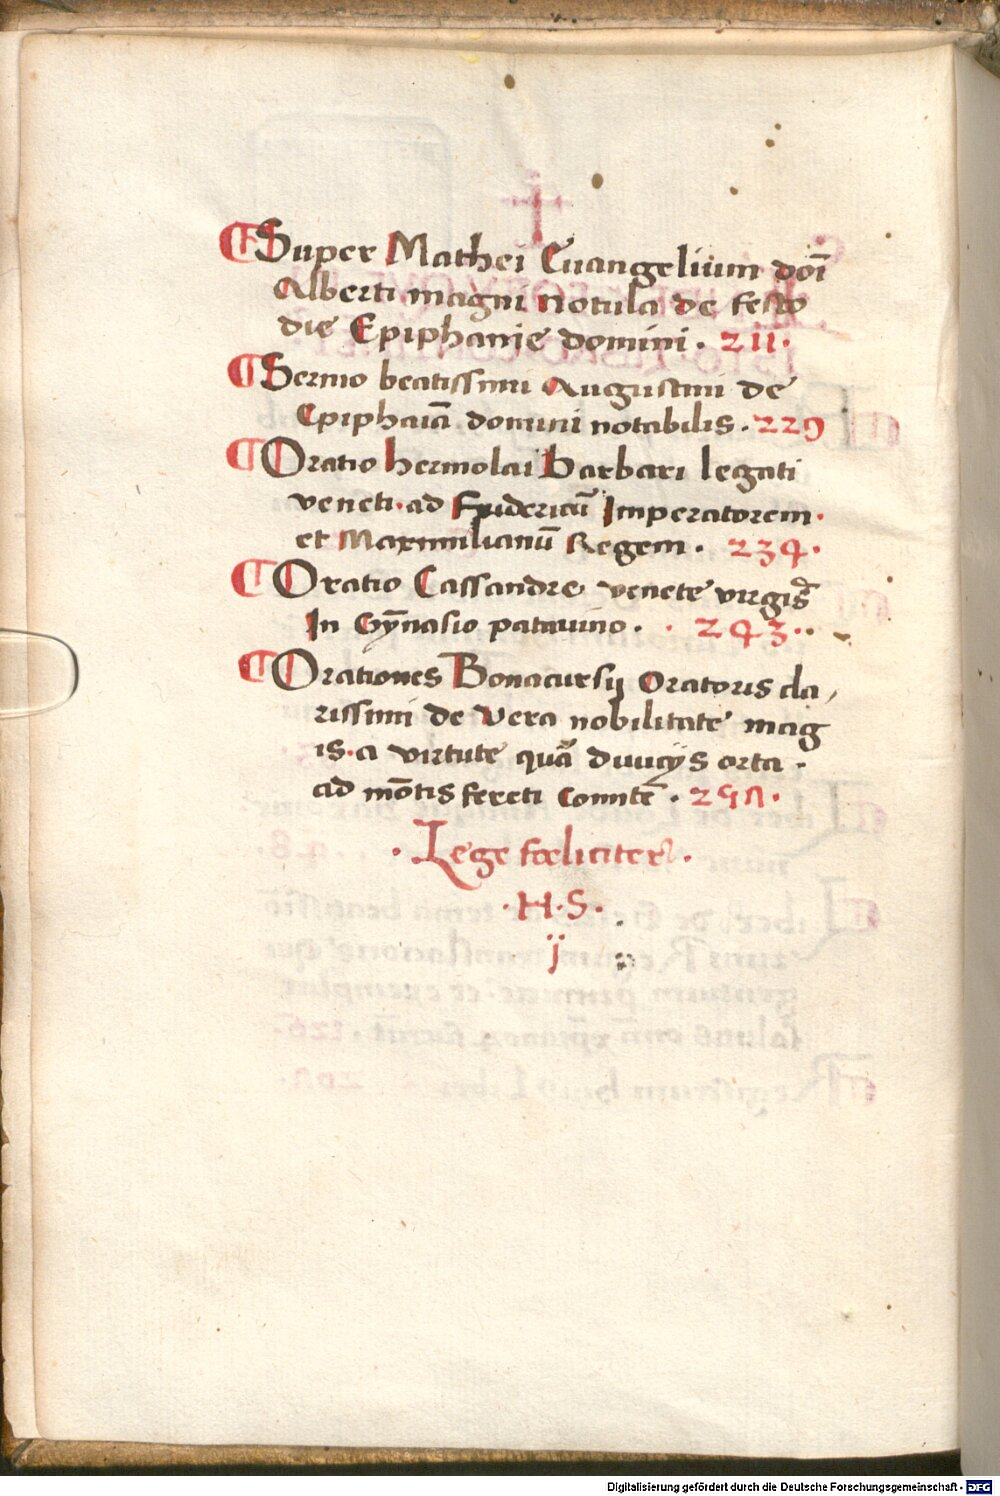 ☩
¶ Super Mathei Euangelium doī
Alberti magni notula de festo
die Epiphanie domini . 211 .
¶ Sermo beatissimi Augustini de
Epiphaiā domini notabilis . 229
¶ Oratio hermolai Barbari legati
veneti . ad Fridericū Imperatorem .
et Maximilianū Regem . 234 .
¶ Oratio Cassandre venete virgis̄
In Gȳnasio patauino . . 243 . .
¶ Orationes Bonacursij Oratoris cla,
rissimi de Vera nobilitate mag
is . a virtute quā diuicijs orta .
ad mōtis fereti Comitē . 257 .
. Lege fœliciter .
. H . S .
j
Digitalisierung gefördert durch die Deutsche Forschungsgemeinschaft - DFG